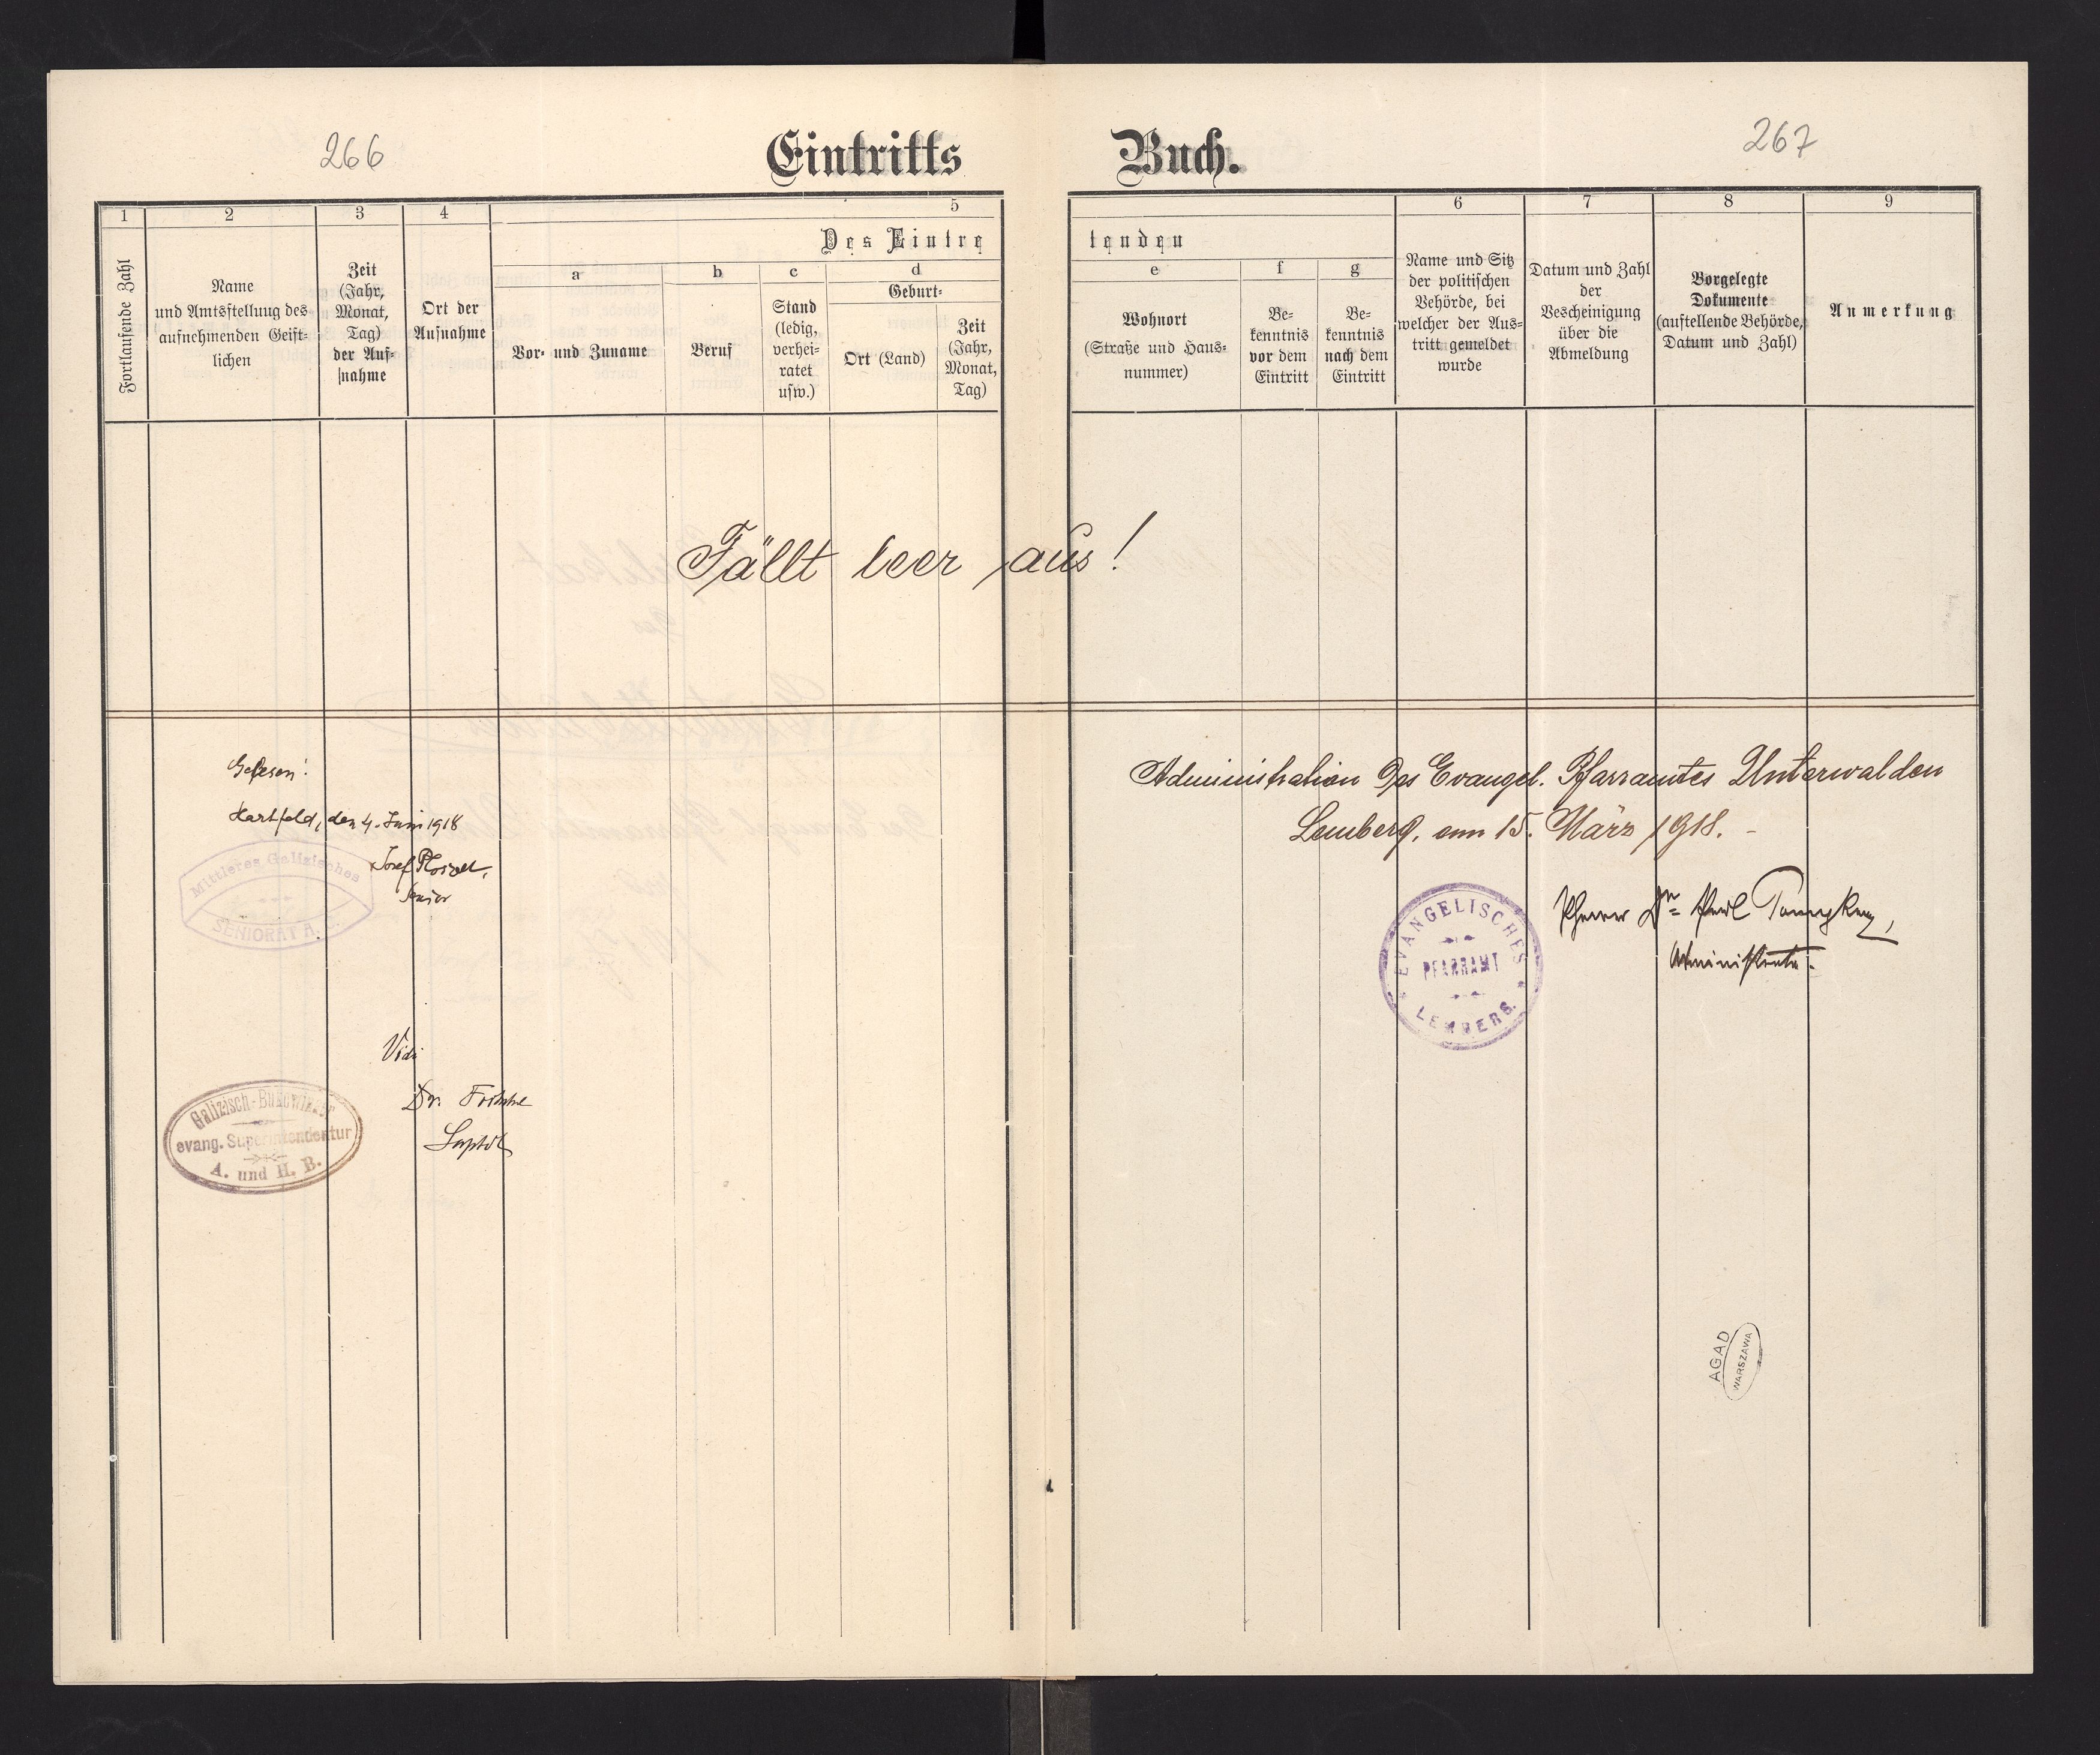 266
Eintritts Buch.
267
1 2 3 4 5 6 7 8 9
Des Eintre tenden
Fortlaufende Zahl
Name
und Amtsstellung des
aufnehmenden Geist-
lichen
Zeit
(Jahr,
Monat,
Tag)
der Auf-
nahme
Ort der
Aufnahme
a
Vor- und Zuname
b
Beruf
c
Stand
(ledig,
verhei-
ratet
usw.)
d
Geburt-
Ort (Land)
Zeit
(Jahr,
Monat,
Tag)
e
Wohnort
(Straße und Haus-
nummer)
f
Be-
kenntnis
vor dem
Eintritt
g
Be-
kenntnis
nach dem
Eintritt
Name und Sitz
der politischen
Behörde, bei
welcher der Aus-
tritt gemeldet
wurde
Datum und Zahl
der
Bescheinigung
über die
Abmeldung
Vorgelegte
Dokumente
(austellende Behörde,
Datum und Zahl)
Anmerkung
Fällt leer aus!
Gelesen!
Hartfeld, den 4. Juni 1918
Josef
Senior
Mittleres Galizisches
SENIORAT A. B.
Vidi
Dr.
Suptdt
Galizisch-Bukowiner
evang. Superintendentur
A. und H. B.
Administration des Evangel. Pfarramtes Unterwalden
Lemberg, am 15. März 1918. -
Pfarrer Dr.
Administrator.
EVANGELISCHES
PFARRAMT
LEMBERG
AGAD
WARSZAWA